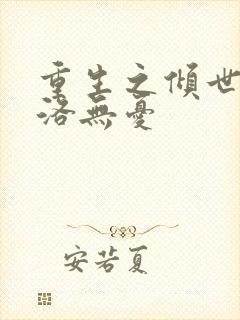 重生之傾世
洛無憂
安若夏